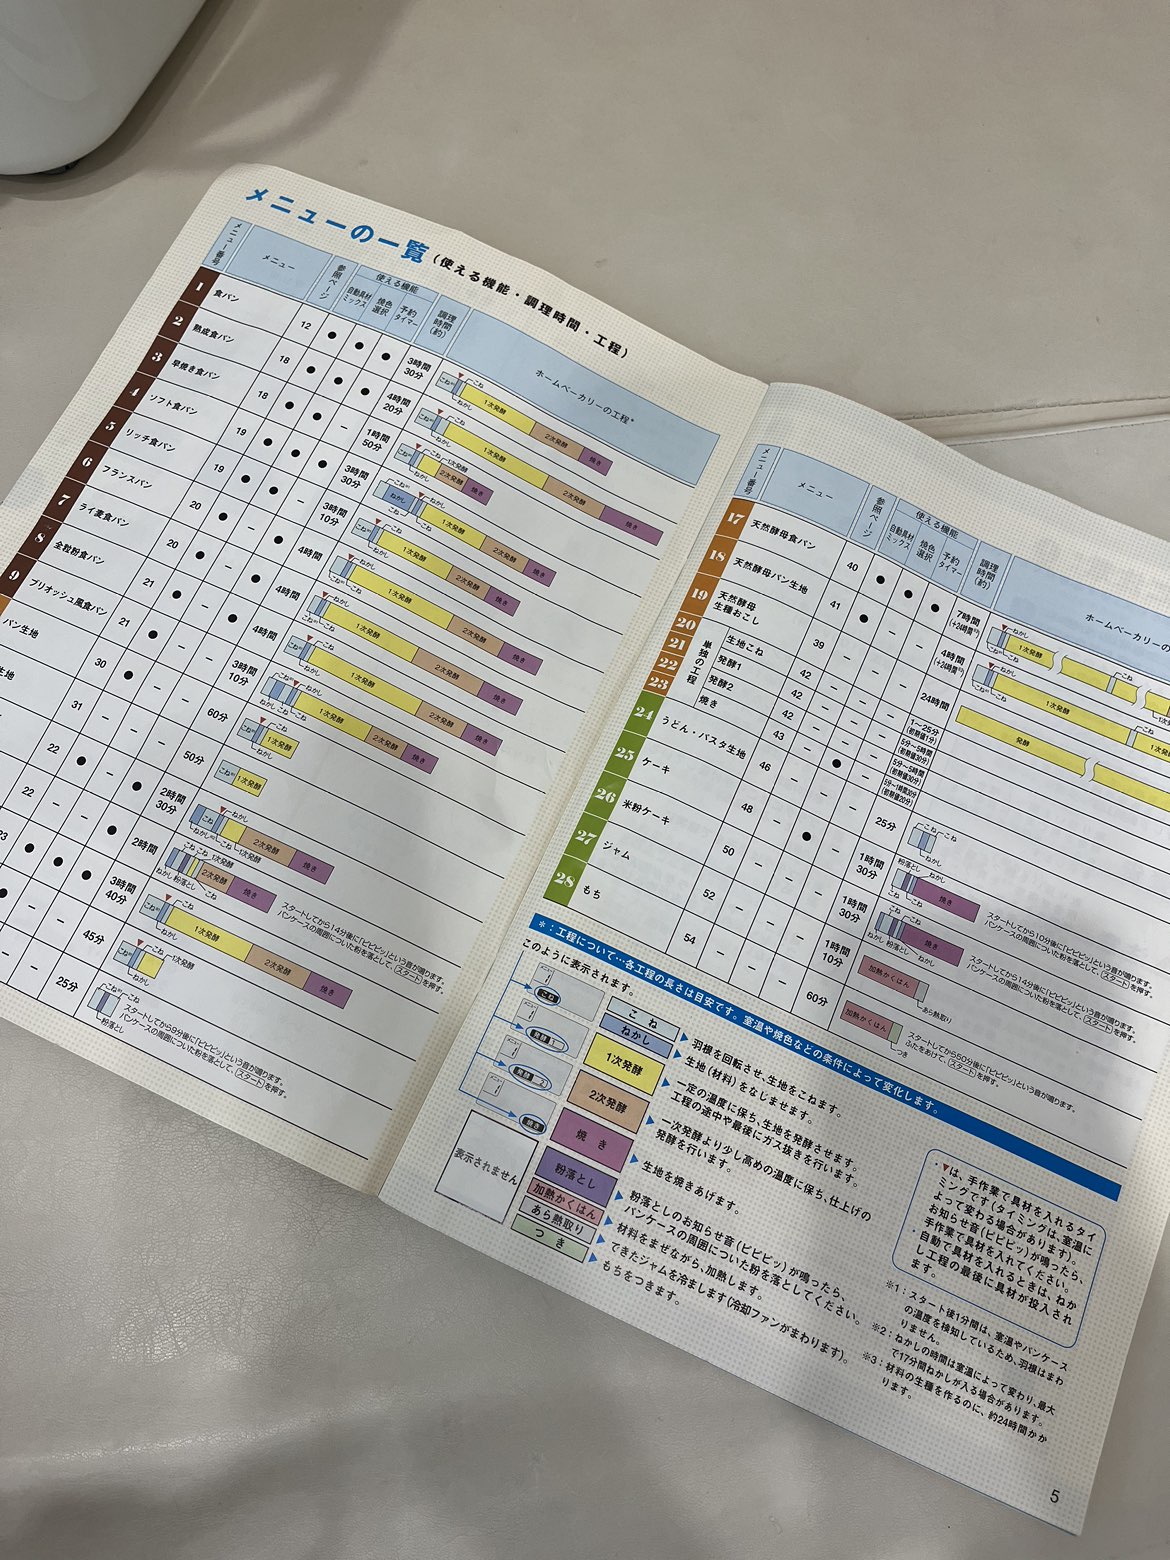 メニューの一覧（使える機能・調理時間・工程）
メニュー番号 メニュー 参照ページ 使える機能 調理時間(約) ホームベーカリーの工程*
自動具材ミックス 焼色選択 予約タイマー
1 食パン 12 ● ● ● 3時間30分 こね ねかし こね 1次発酵 2次発酵 焼き
2 熟成食パン 18 ● ● ● 4時間20分 こね ねかし こね 1次発酵 2次発酵 焼き
3 早焼き食パン 18 ● ● － 1時間50分 こね ねかし こね 1次発酵 2次発酵 焼き
4 ソフト食パン 19 ● ● ● 3時間30分 ねかし こね ねかし こね 1次発酵 2次発酵 焼き
5 リッチ食パン 19 ● ● － 3時間10分 こね ねかし こね 1次発酵 2次発酵 焼き
6 フランスパン 20 ● － ● 4時間 こね ねかし こね 1次発酵 2次発酵 焼き
7 ライ麦食パン 20 ● － ● 4時間 こね ねかし こね 1次発酵 2次発酵 焼き
8 全粒粉食パン 21 ● － ● 4時間 こね ねかし こね 1次発酵 2次発酵 焼き
9 ブリオッシュ風食パン 21 ● － － 3時間10分 ねかし こね 1次発酵 2次発酵 焼き
パン生地 30 ● － － 60分 こね ねかし こね 1次発酵
31 － － － 50分 こね 1次発酵
22 ● － ● 2時間30分 ねかし こね ねかし 1次発酵 2次発酵 焼き
22 － － ● 2時間 ねかし 粉落とし こね こね 1次発酵 2次発酵 焼き
スタートしてから14分後に「ピピピッ」という音が鳴ります。
パンケースの周囲についた粉を落として、スタートを押す。
● ● ● 3時間40分 こね ねかし こね 1次発酵 2次発酵 焼き
45分 こね ねかし こね 1次発酵
25分 こね こね 粉落とし
スタートしてから9分後に「ピピピッ」という音が鳴ります。
パンケースの周囲についた粉を落として、スタートを押す。
メニュー番号 メニュー 参照ページ 使える機能 調理時間(約) ホームベーカリーの
自動具材ミックス 焼色選択 予約タイマー
17 天然酵母食パン 40 ● ● ● 7時間(+24時間※3) こね ねかし こね 1次発酵 こね
18 天然酵母パン生地 41 ● － － 4時間(+24時間※3) こね ねかし こね 1次発酵
19 天然酵母生種おこし 39 － － － 24時間 発酵
単独の工程
20 生地こね 42 － － － 1～25分(初期値1分)
21 発酵1 42 － － － 5分～5時間(初期値30分)
22 発酵2 42 － － － 5分～5時間(初期値30分)
23 焼き 43 － ● － 5分～1時間30分(初期値20分)
24 うどん・パスタ生地 46 － － － 25分 こね こね ねかし
25 ケーキ 48 － ● － 1時間30分 粉落とし 焼き
スタートしてから10分後に「ピピピッ」という音が鳴ります。
パンケースの周囲についた粉を落として、スタートを押す。
26 米粉ケーキ 50 － － － 1時間30分 ねかし 粉落とし ねかし 焼き
スタートしてから14分後に「ピピピッ」という音が鳴ります。
パンケースの周囲についた粉を落として、スタートを押す。
27 ジャム 52 － － － 1時間10分 加熱かくはん あら熱取り
28 もち 54 － － － 60分 加熱かくはん つき
スタートしてから50分後に「ピピピッ」という音が鳴ります。
ふたをあけて、スタートを押す。
＊：工程について…各工程の長さは目安です。室温や焼色などの条件によって変化します。
このように表示されます。
こね 羽根を回転させ、生地をこねます。
ねかし 生地(材料)をなじませます。
発酵1 1次発酵 一定の温度に保ち、生地を発酵させます。
工程の途中や最後にガス抜きを行います。
発酵2 2次発酵 一次発酵より少し高めの温度に保ち、仕上げの
発酵を行います。
焼き 焼き 生地を焼きあげます。
表示されません
粉落とし 粉落としのお知らせ音(ピピピッ)が鳴ったら、
パンケースの周囲についた粉を落としてください。
加熱かくはん 材料をまぜながら、加熱します。
あら熱取り できたジャムを冷まします(冷却ファンがまわります)。
つき もちをつきます。
・▼は、手作業で具材を入れるタイ
ミングです(タイミングは、室温に
よって変わる場合があります)。
お知らせ音(ピピピッ)が鳴ったら、
手作業で具材を入れてください。
・自動で具材を入れるときは、ねか
し工程の最後に具材が投入され
ます。
※1：スタート後1分間は、室温やパンケース
の温度を検知しているため、羽根はまわ
りません。
※2：ねかしの時間は室温によって変わり、最大
で17分間ねかしが入る場合があります。
※3：材料の生種を作るのに、約24時間かか
ります。
5